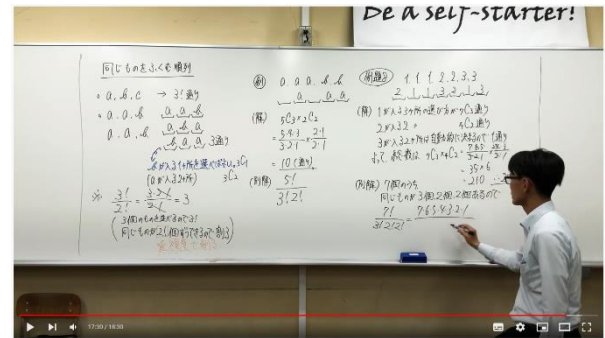 Be a self-starter!
同じものをふくむ順列
・a, b, c → 3! 通り
・a, a, b
a, a, b
3通り
₃C₁
₃C₂
※ 3!/2! = 3·2·1/2·1 = 3
3個のものを並べるので3!
同じものが2!個ずつできるので割る
重複度で割る
例 a a a b b
(解) ₅C₃×₂C₂
= 5·4·3/3·2·1 × 2·1/2·1
= 10 (通り)
(別解) 5!/3!2!
例題2 1 1 1 2 2 3 3
2 1 1 3 2 1 3
(解) 1が入る3ヶ所の選び方が ₇C₃通り
2が入る2ヶ所 ₄C₂通り
3が入る2ヶ所は自動的に決まるので1通り
よって, 総数は, ₇C₃×₄C₂ = 7·6·5/3·2·1 × 4·3/2·1
= 35×6
= 210
(別解) 7個のうち
同じものが3個, 2個, 2個あるので
7!/3!2!2! = 7·6·5·4·3·2·1
17:30 / 18:30